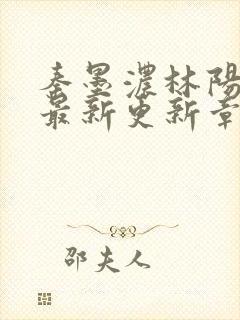 秦墨濃林陽
最新更新章
邵夫人